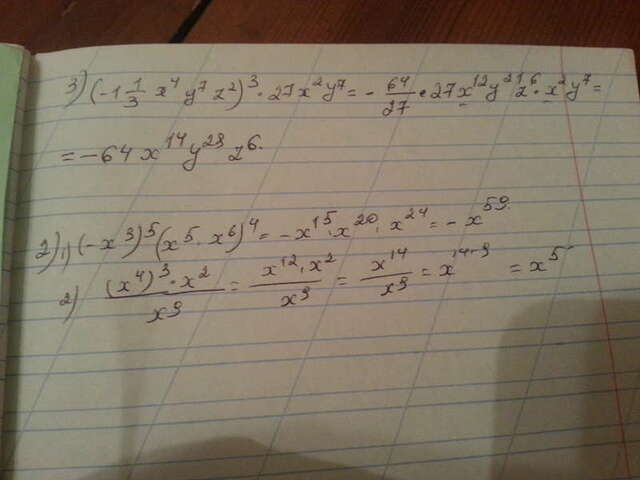 3) (-1 1/3 x⁴ y⁷ z²)³ · 27x²y⁷ = - 64/27 · 27x¹²y²¹z⁶ · x²y⁷ =
= -64 x¹⁴ y²⁸ z⁶.
2) 1) (-x³)⁵ (x⁵ · x⁶)⁴ = -x¹⁵ · x²⁰ · x²⁴ = -x⁵⁹.
2) (x⁴)³ · x² / x⁹ = x¹² · x² / x⁹ = x¹⁴ / x⁹ = x¹⁴⁻⁹ = x⁵